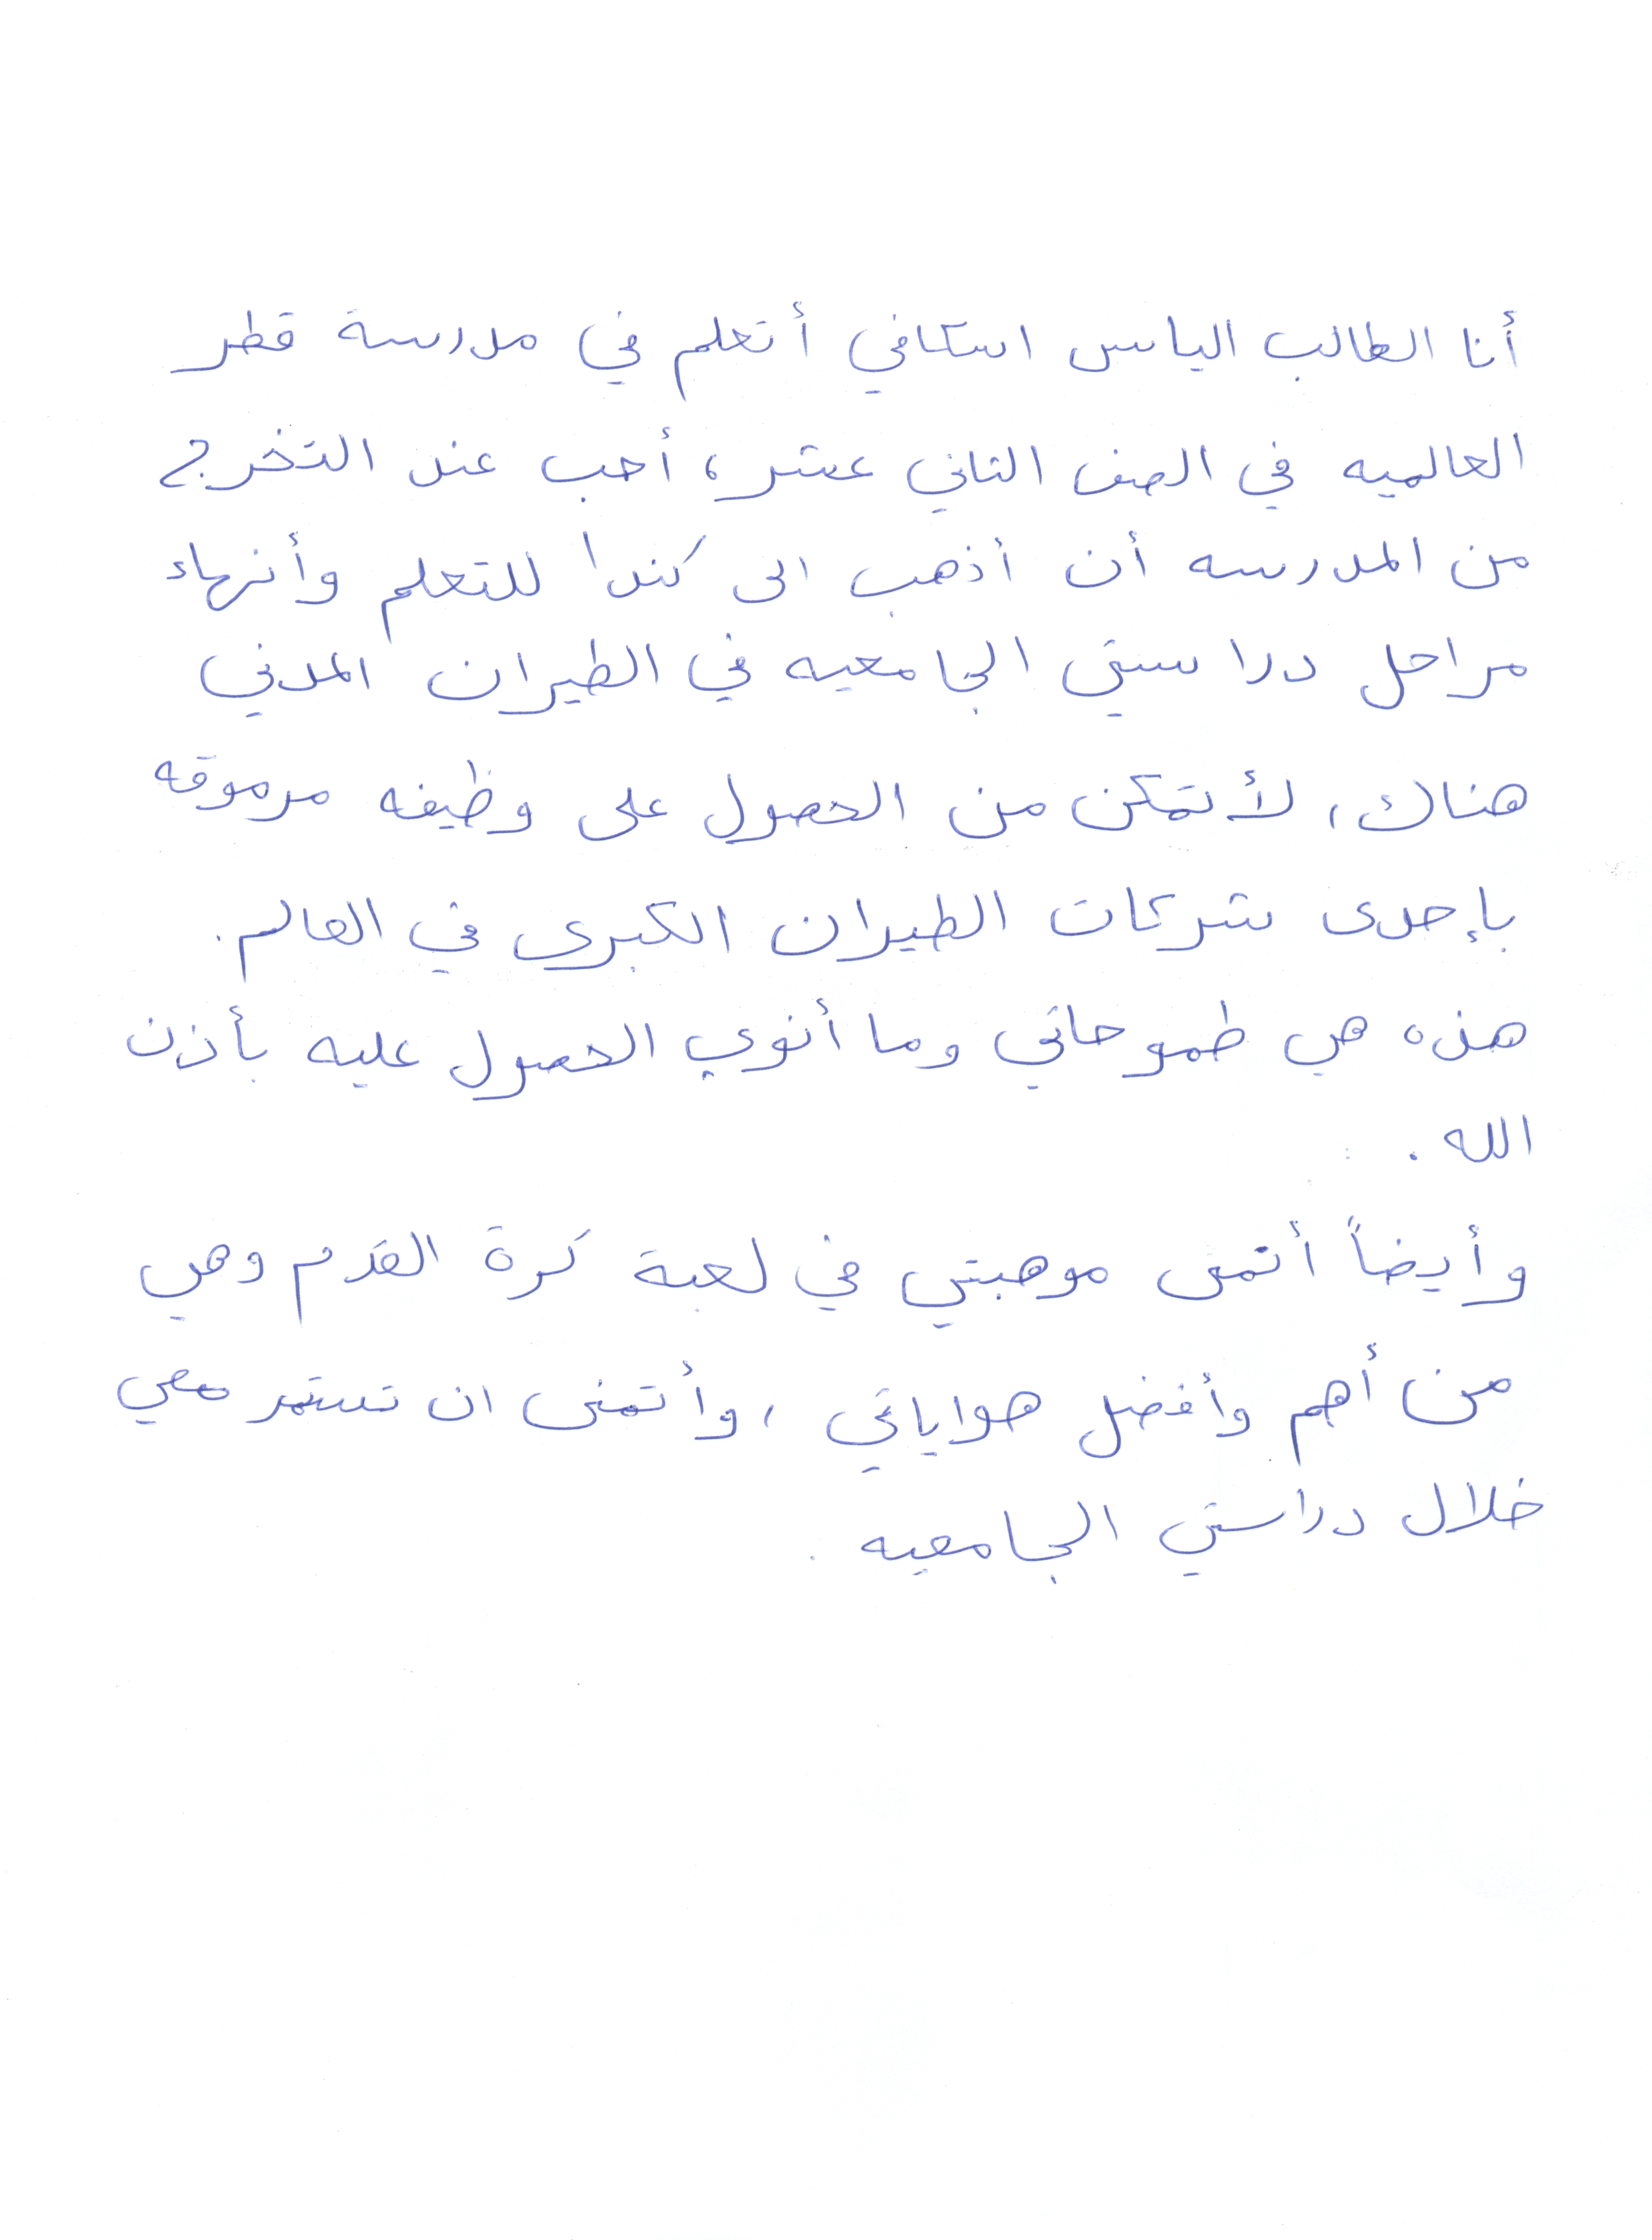 أنا الطالب الياس اسكافي أتعلم في مدرسة قطر
العالميه في الصف الثاني عشر، أحب عند التخرج
من المدرسه أن أذهب الى كندا للتعلم وأنهاء
مراحل دراستي الجامعيه في الطيران المدني
هناك، لأتمكن من الحصول على وظيفه مرموقه
بإحدى شركات الطيران الكبرى في العالم.
هذه هي طموحاتي وما أنوي الحصول عليه بأذن
الله.
وأيضاً أتمنى موهبتي في لعبة كرة القدم وهي
من أهم وأفضل هواياتي، وأتمنى ان تستمر معي
خلال دراستي الجامعيه.